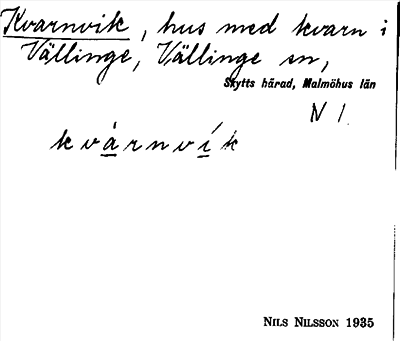 Kvarnvik, hus med kvarn i
Vällinge, Vällinge sn,
Skytts härad, Malmöhus län
N 1.
kvárnvík
NILS NILSSON 1935